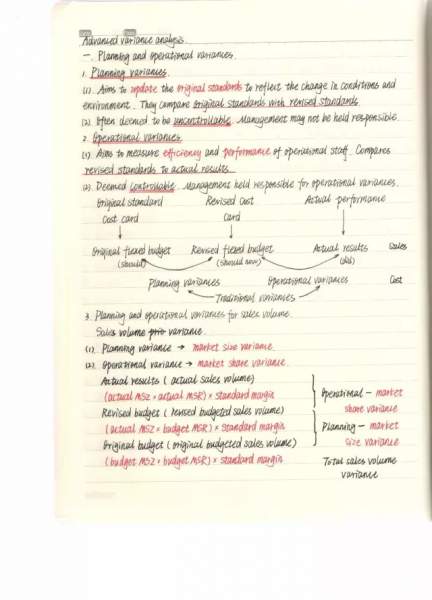 Advanced variance analysis
一. Planning and operational variances.
1. Planning variances.
(1). Aims to update the original standards to reflect the change in conditions and
environment. They compare original standards with revised standards.
(2). Often deemed to be uncontrollable. Management may not be held responsible.
2. Operational variances.
(1). Aims to measure efficiency and performance of operational staff. Compares
revised standards to actual results.
(2). Deemed controllable. Management held responsible for operational variances.
Original standard Revised Cost Actual performance
Cost card Card
Original flexed budget Revised flexed budget Actual results Sales
(should) (should now) (did)
Planning variances Operational variances Cost
Traditional variances
3. Planning and operational variances for sales volume.
Sales volume price variance.
(1). Planning variance → market size variance.
(2). Operational variance → market share variance.
Actual results (actual sales volume)
(actual MSZ × actual MSR) × standard margin Operational - market
Revised budget (revised budgeted sales volume) share variance
(actual MSZ × budget MSR) × standard margin Planning - market
Original budget (original budgeted sales volume) size variance
(budget MSZ × budget MSR) × standard margin Total sales volume
variance